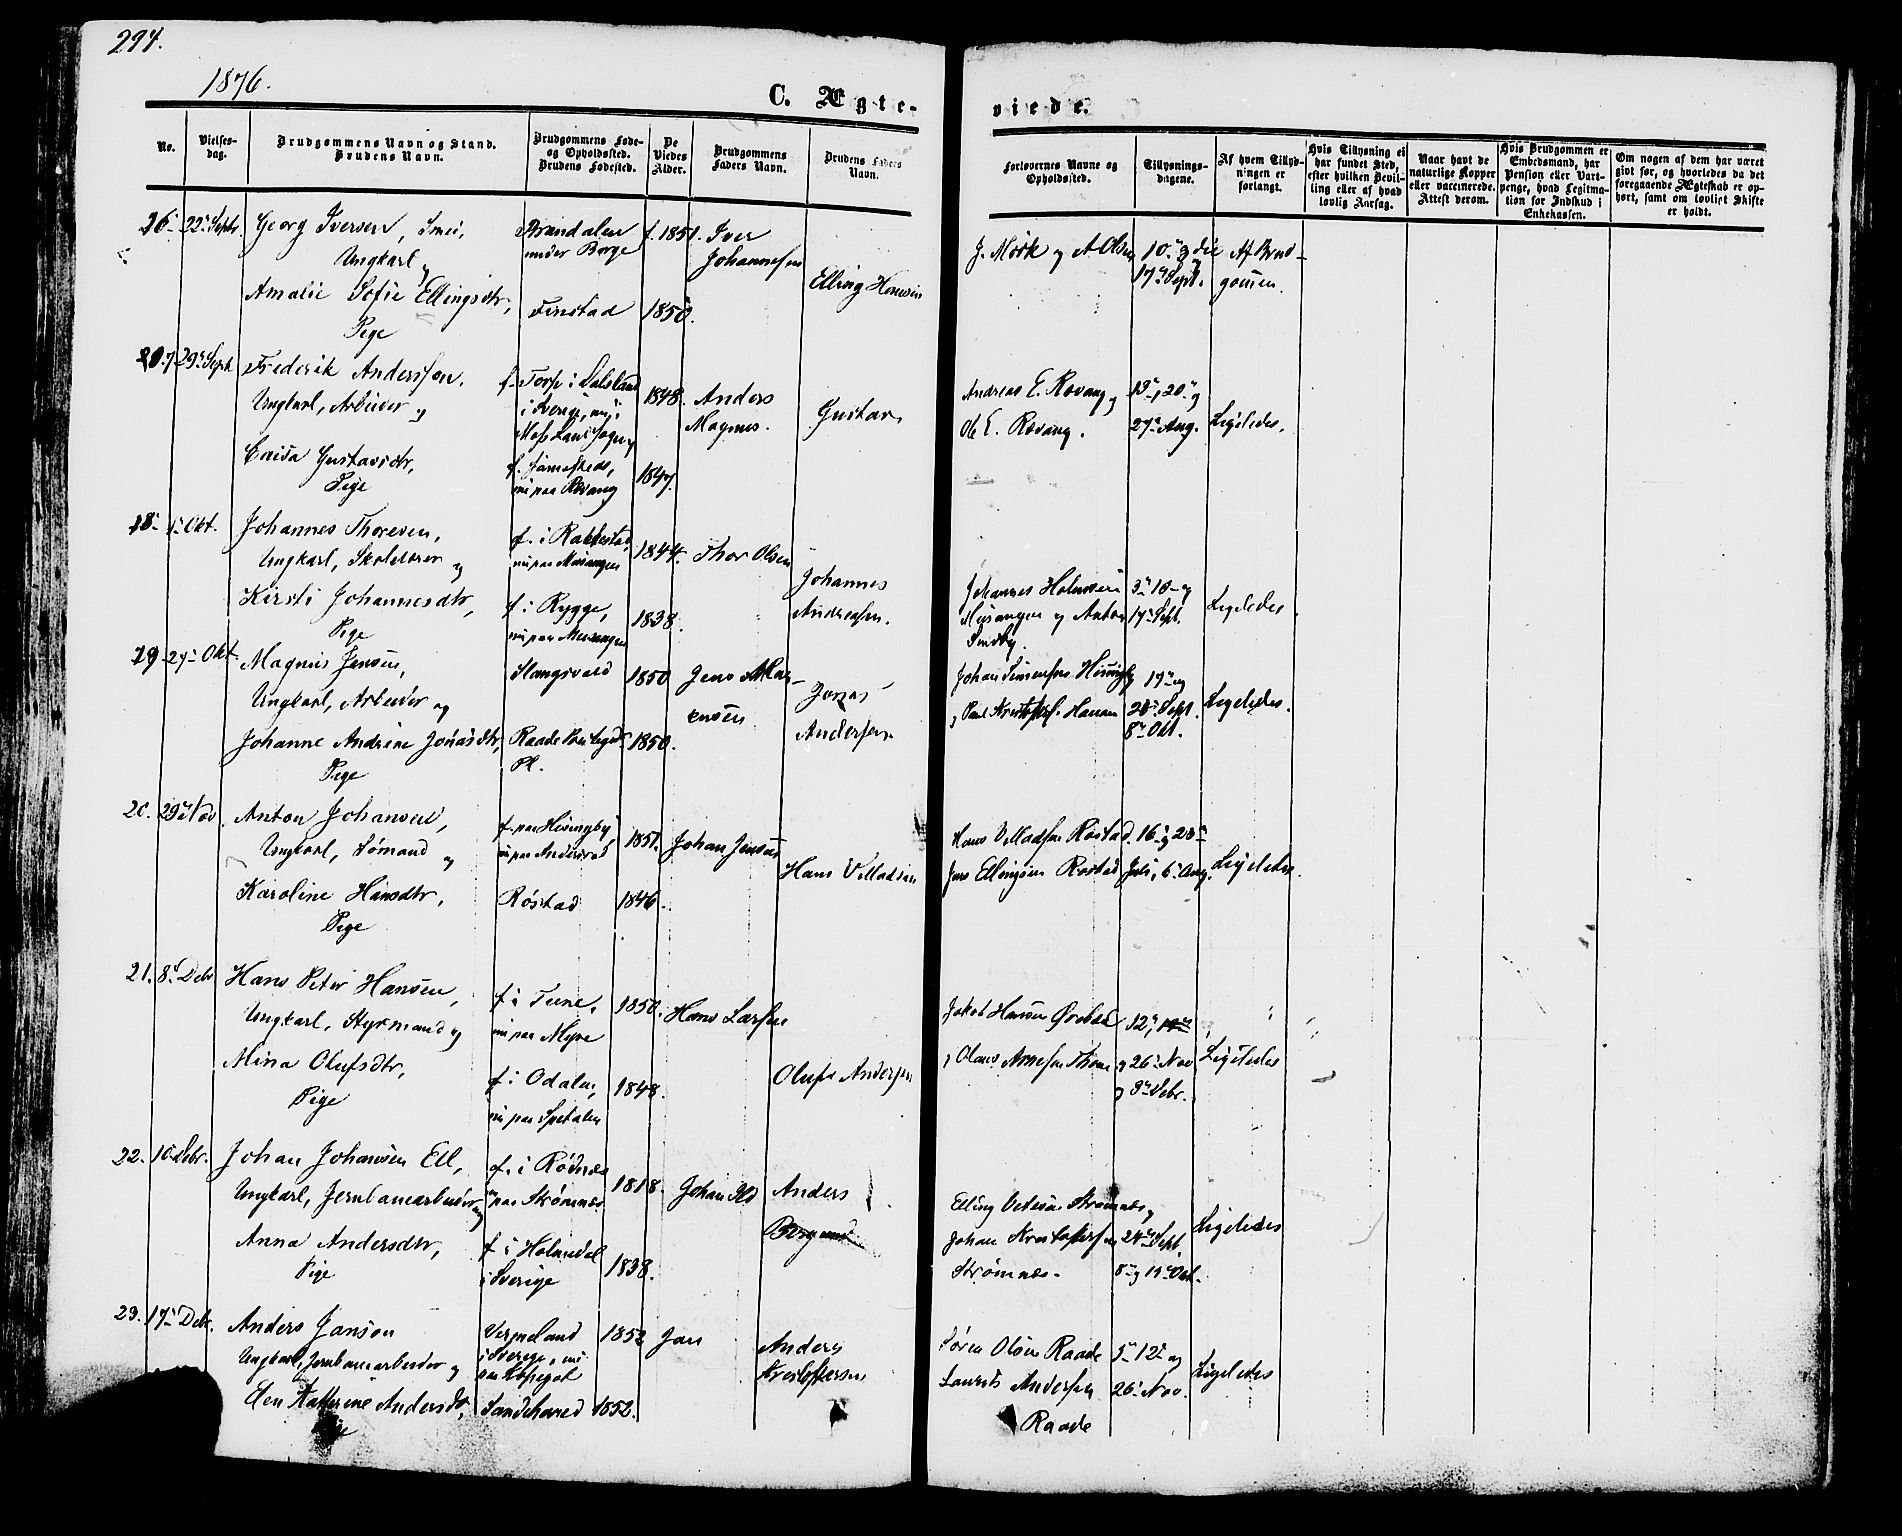 294.
1876.
C. Ægte-
viede.
No.
Vielses-
dag.
Brudgommens Navn og Stand.
Brudens Navn.
Brudgommens Føde-
og Opholdssted.
Brudens Fødested.
De
Viedes
Alder.
Brudgommens
Faders Navn.
Brudens Faders
Navn.
Forlovernes Navne og
Opholdssted.
Tillysnings-
dagene.
Af hvem Tillys-
ningen er
forlangt.
Hvis Tillysning ei
har fundet Sted,
efter hvilken Bevil-
ling eller af hvad
lovlig Aarsag.
Naar havt de
naturlige Kopper
eller vaccinerede.
Attest derom.
Hvis Brudgommen er
Embedsmand, har
Pension eller Vart-
penge, hvad Legitima-
tion for Indskud i
Enkekassen.
Om nogen af dem har været
givt før, og hvorledes da det
foregaaende Ægteskab er op-
hørt, samt om lovligt Skifte
er holdt.
22 Septr. Georg Iversen, Smed,
Ungkarl og
Amalie Sofie Ellingsdtr,
Pige
under Borge
Finstad
f. 1851.
1850.
Iver
Johannesen
Elling Hansen
J. Mørk og A Olsen
10 og die
17 Sept.
Af Brud-
gommen.
29 Sept Frederik Andersson,
Ungkarl, Arbeider og
Caisa Gustavsdtr,
Pige
f. Torp i Dalsland
i Sverige, nu i
Moss Landsogn
f. sammesteds,
nu paa Rovang
1848.
1847.
Anders
Magnus.
Gustav
Andreas E. Rovang og
Ole E. Rovang.
13, 20 og
27 Aug.
Ligeledes.
18 1 Okt. Johannes Thoresen,
Ungkarl, Skolelærer og
Kirsti Johannesdtr,
Pige
f. i Rakkestad,
nu paa Missingen
f. i Rygge,
nu paa Missingen
1844.
1838.
Thor Olsen
Johannes
Andreasen.
Johannes Halvorsen
Missingen og Anton
Sundby.
3 10 og
17 Sept.
Ligeledes
19 27 Okt. Magnus Jensen,
Ungkarl, Arbeider og
Johanne Andrine Jonasdtr,
Pige
Slangsvold
Raade Præstegaards
Pl.
1850
1850.
Jens Mag-
nusen
Jonas
Andersen
og Paul Kristoffers. Hanan
17 og
24 Sept.
8 Okt.
Ligeledes.
20. 29 Nov. Anton Johansen,
Ungkarl, Sømand og
Karoline Hansdtr,
Pige
f. paa Hissingby
nu paa Andersrød
Rostad
1851.
1846.
Johan Jensen
Hans V Madsen
Hans V Madsen Rostad
Jens Ellingsen Rostad
16 og 23
Juli, 6 Aug.
Ligeledes
21. 8 Debr Hans Peter Hansen,
Ungkarl, Styrmand og
Mina Olufsdtr,
Pige
f. i Tune,
nu paa Myre
f. i Odalen,
nu paa Spetalen
1850.
1848.
Hans Larsen
Oluf Andersen
Jakob Hansen Ørebæk
og Olaus Arnesen Thorne
12,
og 26 Nov
og 3 Debr.
Ligeledes
22. 10 Debr. Johan Johansen Ell,
Ungkarl, Jernbanearbeider og
Anna Andersdtr,
Pige
f. i Rødenæs
nu paa Strømnæs
f. i Holmedal
i Sverige
1818.
1838.
Johan
Anders
Elling Strømnæs og
Johan Kristoffersen
Strømnæs.
24 Sept.
8 og 15 Okt.
Ligeledes
23. 17 Debr. Anders Janson
Ungkarl, Jernbanearbeider og
Elen Kathrine Andersdtr,
Pige
Vermeland
i Sverige, nu
paa Kopegal
Sandehoved
1852
1852.
Jan
Anders
Kristoffersen
Søren Olsen Raade
Laurits Andersen
Raade
5 12 og
26 Nov.
Ligeledes